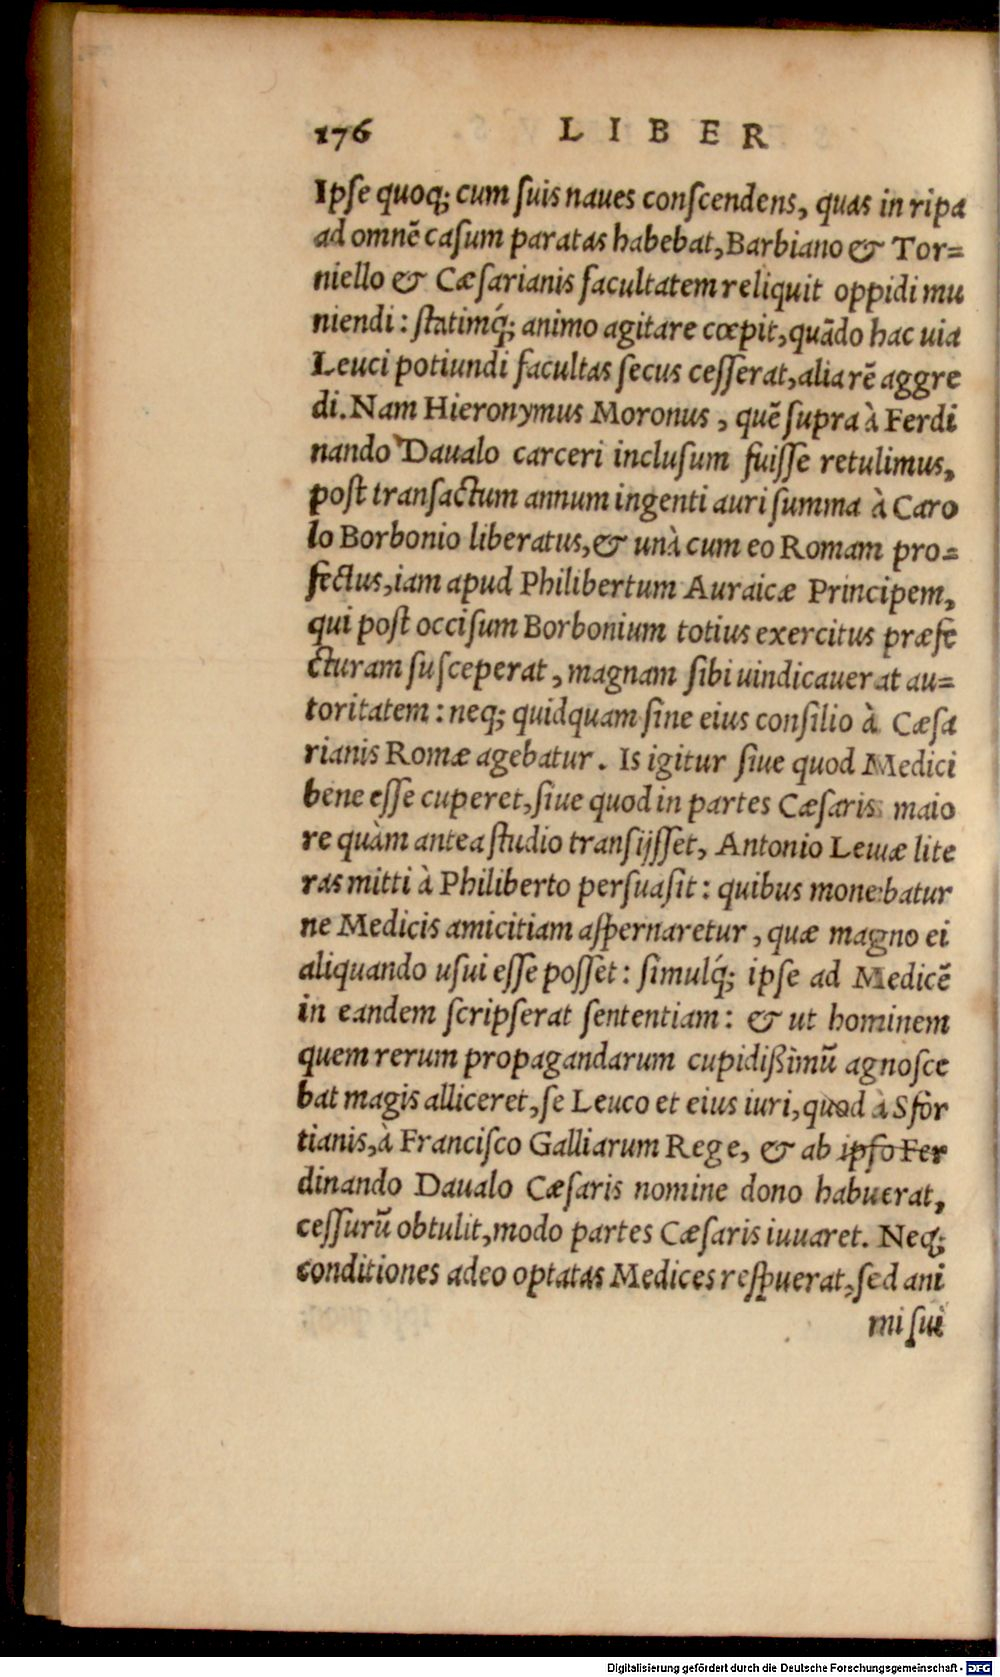 176 LIBER
Ipse quoq; cum suis naues conscendens, quas in ripa
ad omnē casum paratas habebat, Barbiano & Tor=
niello & Cæsarianis facultatem reliquit oppidi mu
niendi: statimq́; animo agitare cœpit, quādo hac uia
Leuci potiundi facultas secus cesserat, alia rē aggre
di. Nam Hieronymus Moronus, quē supra à Ferdi
nando Daualo carceri inclusum fuisse retulimus,
post transactum annum ingenti auri summa à Caro
lo Borbonio liberatus, & unà cum eo Romam pro=
fectus, iam apud Philibertum Auraicæ Principem,
qui post occisum Borbonium totius exercitus præfe
cturam susceperat, magnam sibi uindicauerat au=
toritatem: neq; quidquam sine eius consilio à Cæsa
rianis Romæ agebatur. Is igitur siue quod Medici
bene esse cuperet, siue quod in partes Cæsaris maio
re quàm antea studio transijsset, Antonio Leuæ lite
ras mitti à Philiberto persuasit: quibus monebatur
ne Medicis amicitiam aspernaretur, quæ magno ei
aliquando usui esse posset: simulq́; ipse ad Medicē
in eandem scripserat sententiam: & ut hominem
quem rerum propagandarum cupidißimū agnosce
bat magis alliceret, se Leuco et eius iuri, quod à Sfor
tianis, à Francisco Galliarum Rege, & ab ipso Fer
dinando Daualo Cæsaris nomine dono habuerat,
cessurū obtulit, modo partes Cæsaris iuuaret. Neq;
conditiones adeo optatas Medices respuerat, sed ani
mi sui
Digitalisierung gefördert durch die Deutsche Forschungsgemeinschaft - DFG